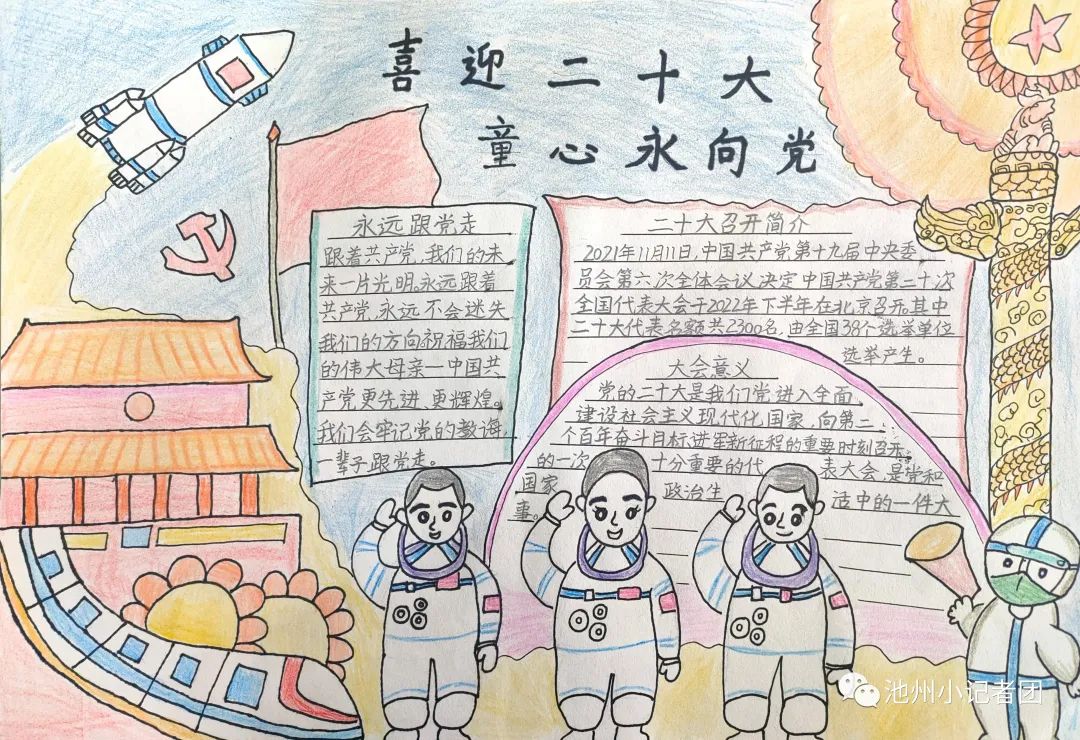 喜迎二十大
童心永向党
永远跟党走
跟着共产党,我们的未
来一片光明。永远跟着
共产党,永远不会迷失
我们的方向祝福我们
的伟大母亲一中国共
产党更先进,更辉煌。
我们会牢记党的教诲,
一辈子跟党走。
二十大召开简介
2021年11月11日,中国共产党第十九届中央委
员会第六次全体会议决定中国共产党第二十次
全国代表大会于2022年下半年在北京召开。其中
二十大代表名额共2300名,由全国38个选举单位
选举产生。
大会意义
党的二十大是我们党进入全面
建设社会主义现代化国家,向第二
个百年奋斗目标进军新征程的重要时刻召开
的一次十分重要的代表大会,是党和
国家政治生适中的一件大
事。
池州小记者团